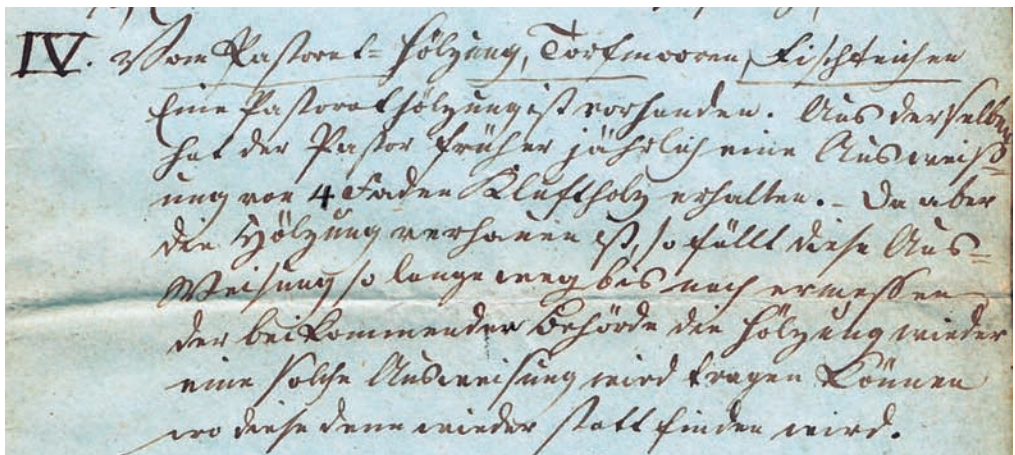 IV. Vom Pastorat-Hölzung, Torfmooren, Fischteichen
Eine Pastorathölzung ist vorhanden. Aus derselben
hat der Pastor früher jährlich eine Ausweiß-
ung von 4 Faden Kluftholz erhalten. - Da aber
die Hölzung verhauen ist, so fällt diese Aus-
Weisung so lange weg bis nach ermessen
der beikommenden Behörde die Hölzung wieder
eine solche Ausweisung wird tragen können
wo diese denn wieder statt finden wird.